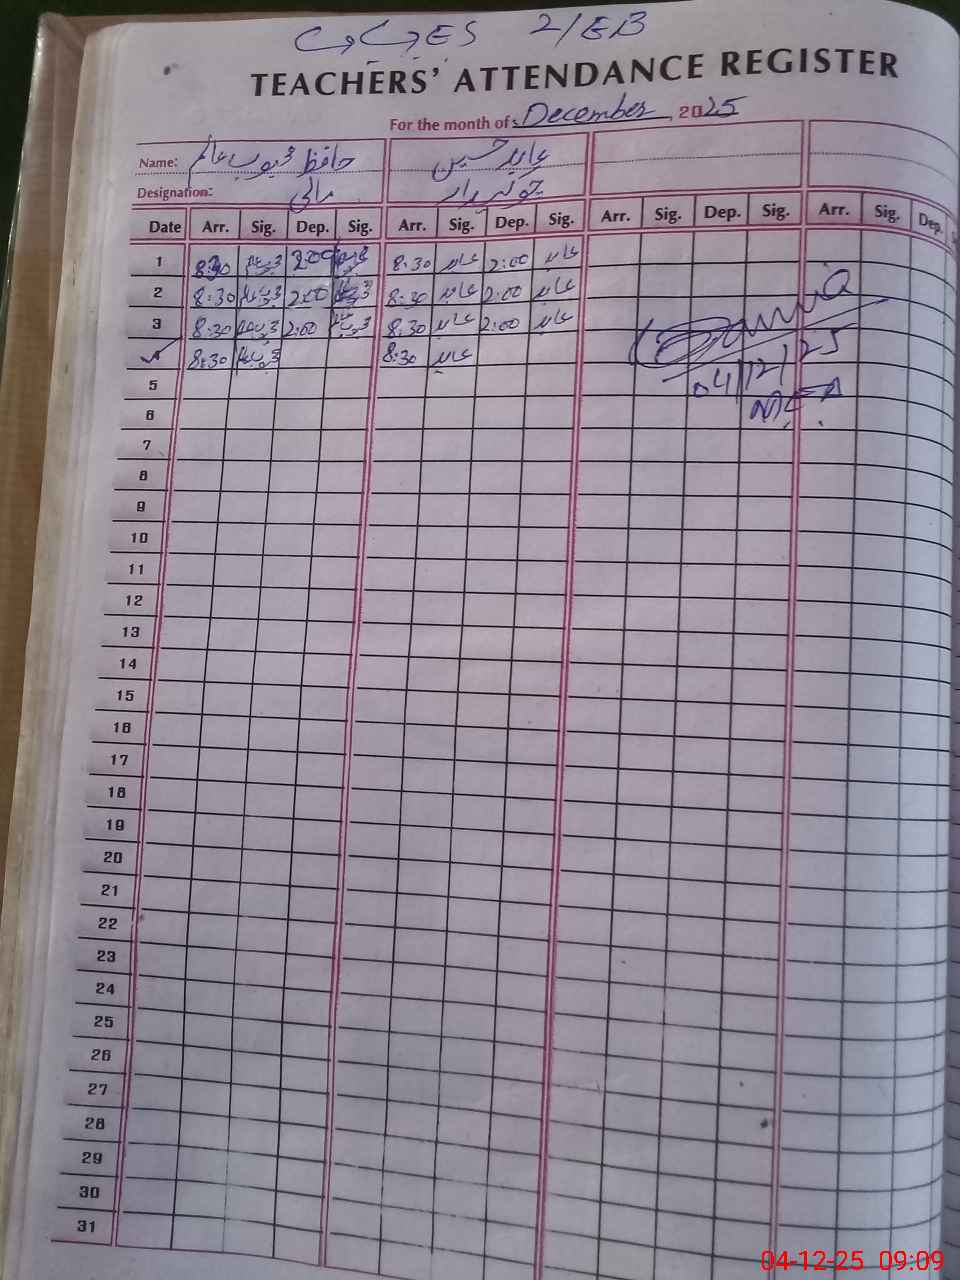 GGES 2/EB
TEACHERS' ATTENDANCE REGISTER
For the month of: December, 2025
Name: حافظ محبوب عالم عابد حسین
Designation: مالی چوکیدار
Date Arr. Sig. Dep. Sig. Arr. Sig. Dep. Sig. Arr. Sig. Dep. Sig. Arr. Sig. Dep.
1 8:30 محبوب 2:00 محبوب 8:30 عابد 2:00 عابد
2 8:30 محبوب 2:00 محبوب 8:30 عابد 2:00 عابد
3 8:30 محبوب 2:00 محبوب 8:30 عابد 2:00 عابد
4 8:30 محبوب 8:30 عابد
04/12/25
MEA
5
6
7
8
9
10
11
12
13
14
15
16
17
18
19
20
21
22
23
24
25
26
27
28
29
30
31
04-12-25 09:09